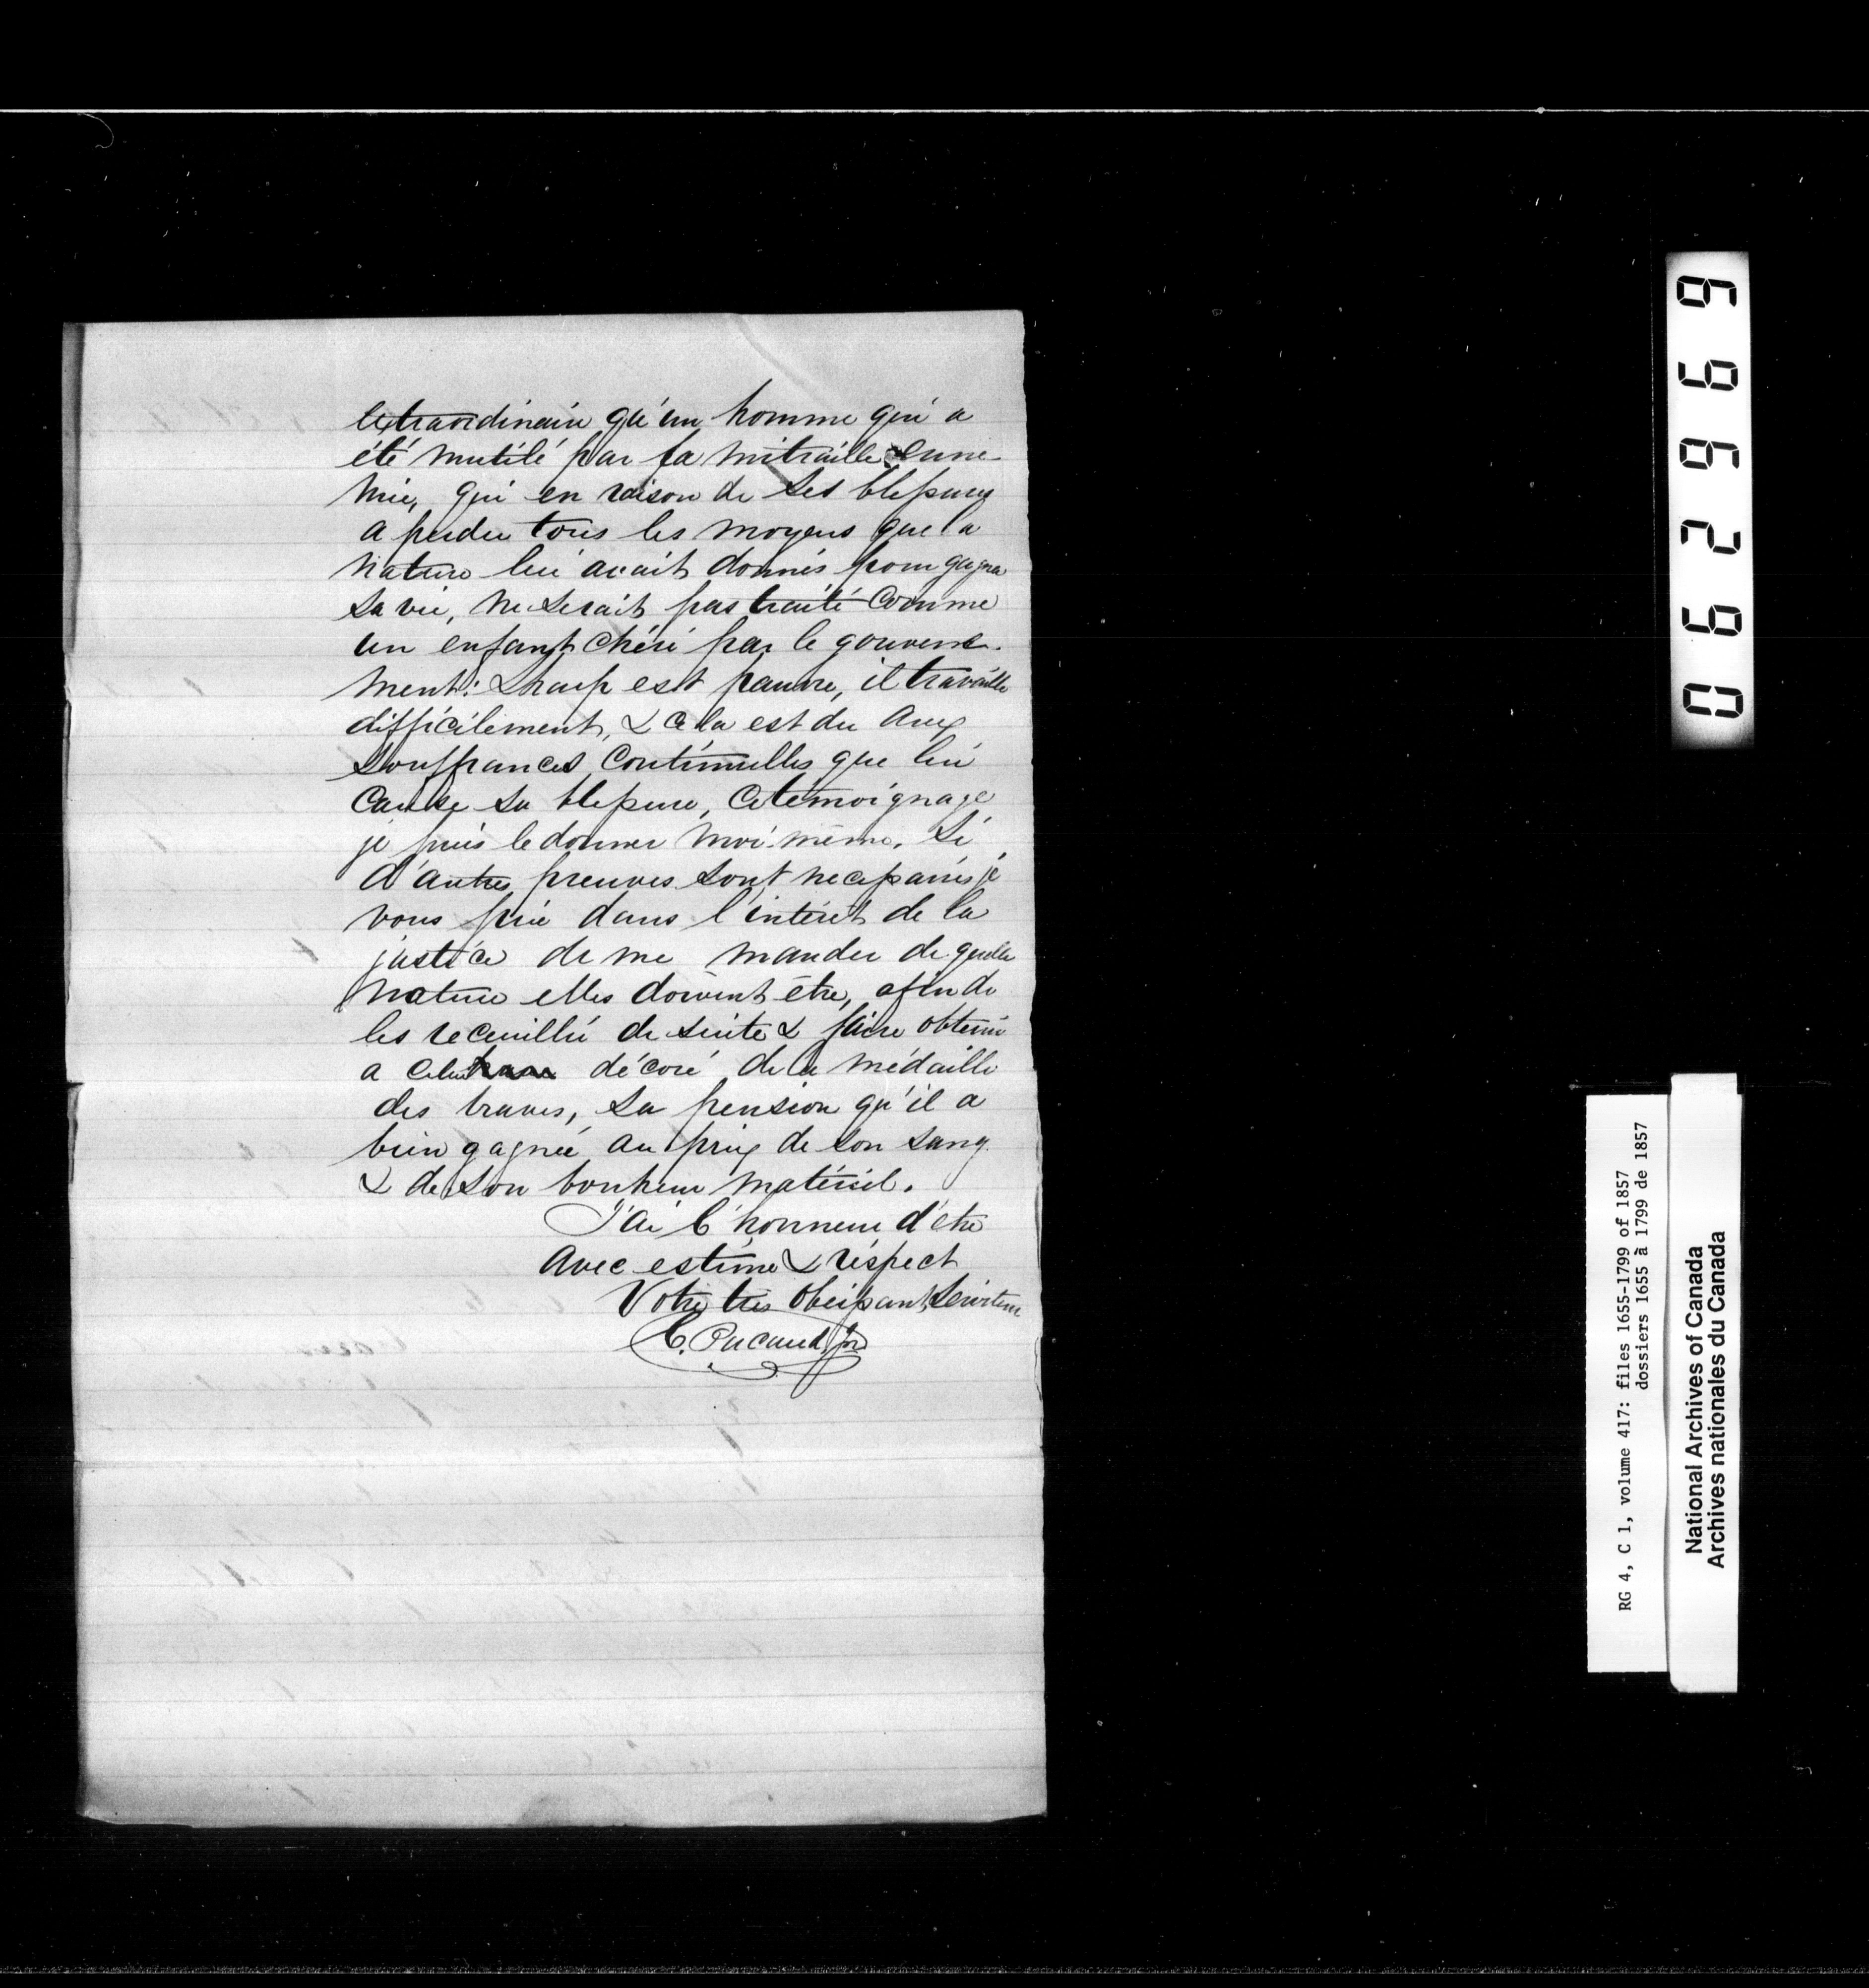 extraordinaire qu'un homme qui a
été mutilé par la mitraille enne-
mie, qui en raison de ses blessures
a perdu tous les moyens que la
nature lui avait donnés pour gagner
sa vie, ne serait pas traité comme
un enfant chéri par le gouverne-
ment: Sharp est pauvre, il travaille
difficilement, & cela est du aux
souffrances continuelles que lui
cause sa blessure, ce temoignage
je puis le donner moi-même. Si
d'autres preuves sont necessaires je
vous prie dans l'intérêt de la
justice de me mander de quelle
nature elles doivent être, afin de
les recueillir de suite & faire obtenir
a celui décoré de la médaille
des braves, sa pension qu'il a
bien gagnée au prix de son sang
& de son bonheur matériel.
J'ai l'honneur d'etre
avec estime & respect
Votre tres obeissant Serviteur
C. Pacaud, Jr
062969
RG 4, C 1, volume 417: files 1655-1799 of 1857
dossiers 1655 à 1799 de 1857
National Archives of Canada
Archives nationales du Canada